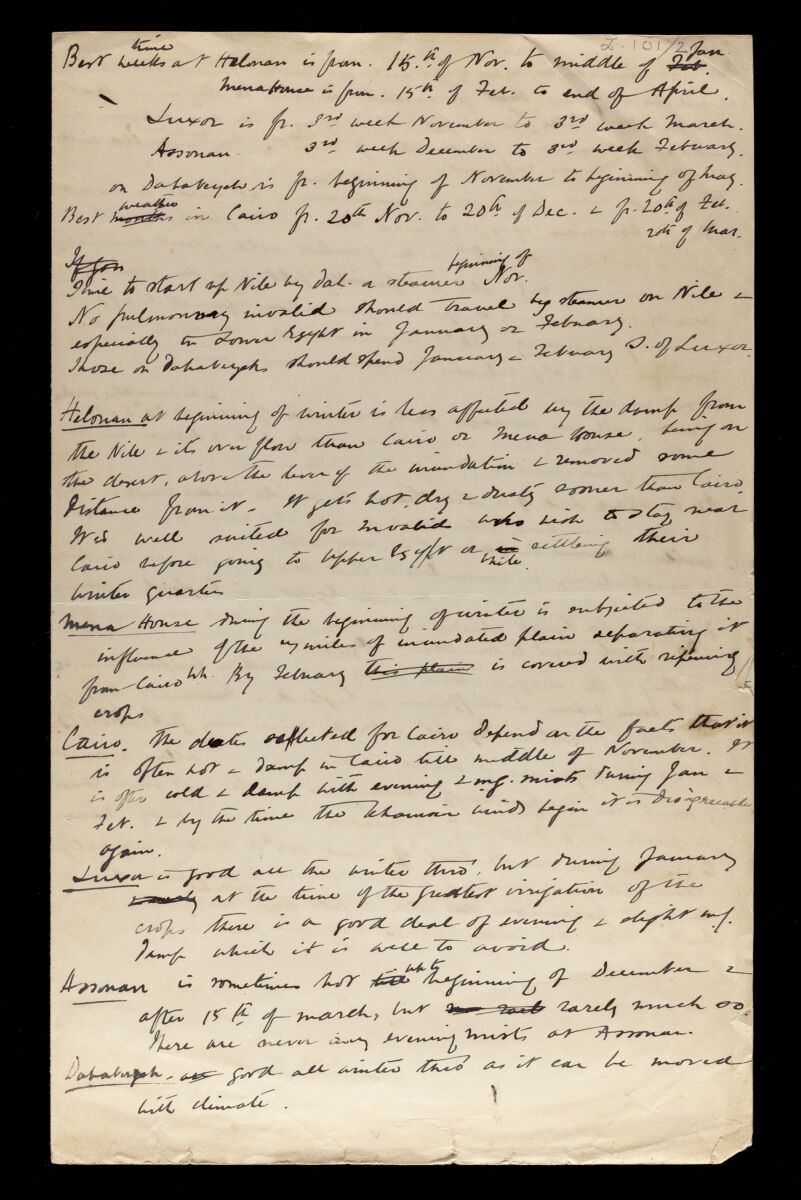 L.101/2
Best time at Helouan is from. 15th of Nov. to middle of Jan.
Mena House is from. 15th of Feb. to end of April.
Luxor is fr. 3rd week November to 3rd week March.
Assouan. 3rd week December to 3rd week February.
on Dahabeyeh is fr. beginning of November to beginning of May.
Best weather in Cairo fr. 20th Nov. to 20th of Dec. & fr. 20th of Feb.
20th of Mar.
If you
Time to start up Nile by Dah. or steamer beginning of Nov.
No pulmonary invalid should travel by steamer on Nile &
especially in Lower Egypt in January or February.
Those on Dahabeyehs should spend January & February S. of Luxor.
Helouan at beginning of winter is less affected by the damp from
the Nile & its overflow than Cairo or Mena House, being on
the desert, above the level of the inundation & removed some
distance from it. It gets hot, dry & dusty sooner than Cairo.
It is well suited for Invalids who wish to stay near
Cairo before going to Upper Egypt or settling their
winter quarters
Mena House during the beginning of winter is subjected to the
influence of the miles of inundated plain separating it
from Cairo wh. By February this plain is covered with ripening
crops
Cairo. The dates selected for Cairo depend on the facts that it
is often hot & damp in Cairo till middle of November. It
is often cold & damp with evening & mg. mists during Jan &
Feb. & by the time the khamsin winds begin it is disagreeable
again.
Luxor is good all the winter thro', but during January
at the time of the greatest irrigation of the
crops there is a good deal of evening & slight mg.
damp which it is well to avoid.
Assouan is sometimes hot till beginning of December &
after 15th of March, but rarely much so.
There are never any evening mists at Assouan.
Dahabeyeh - good all winter thro' as it can be moved
with climate.